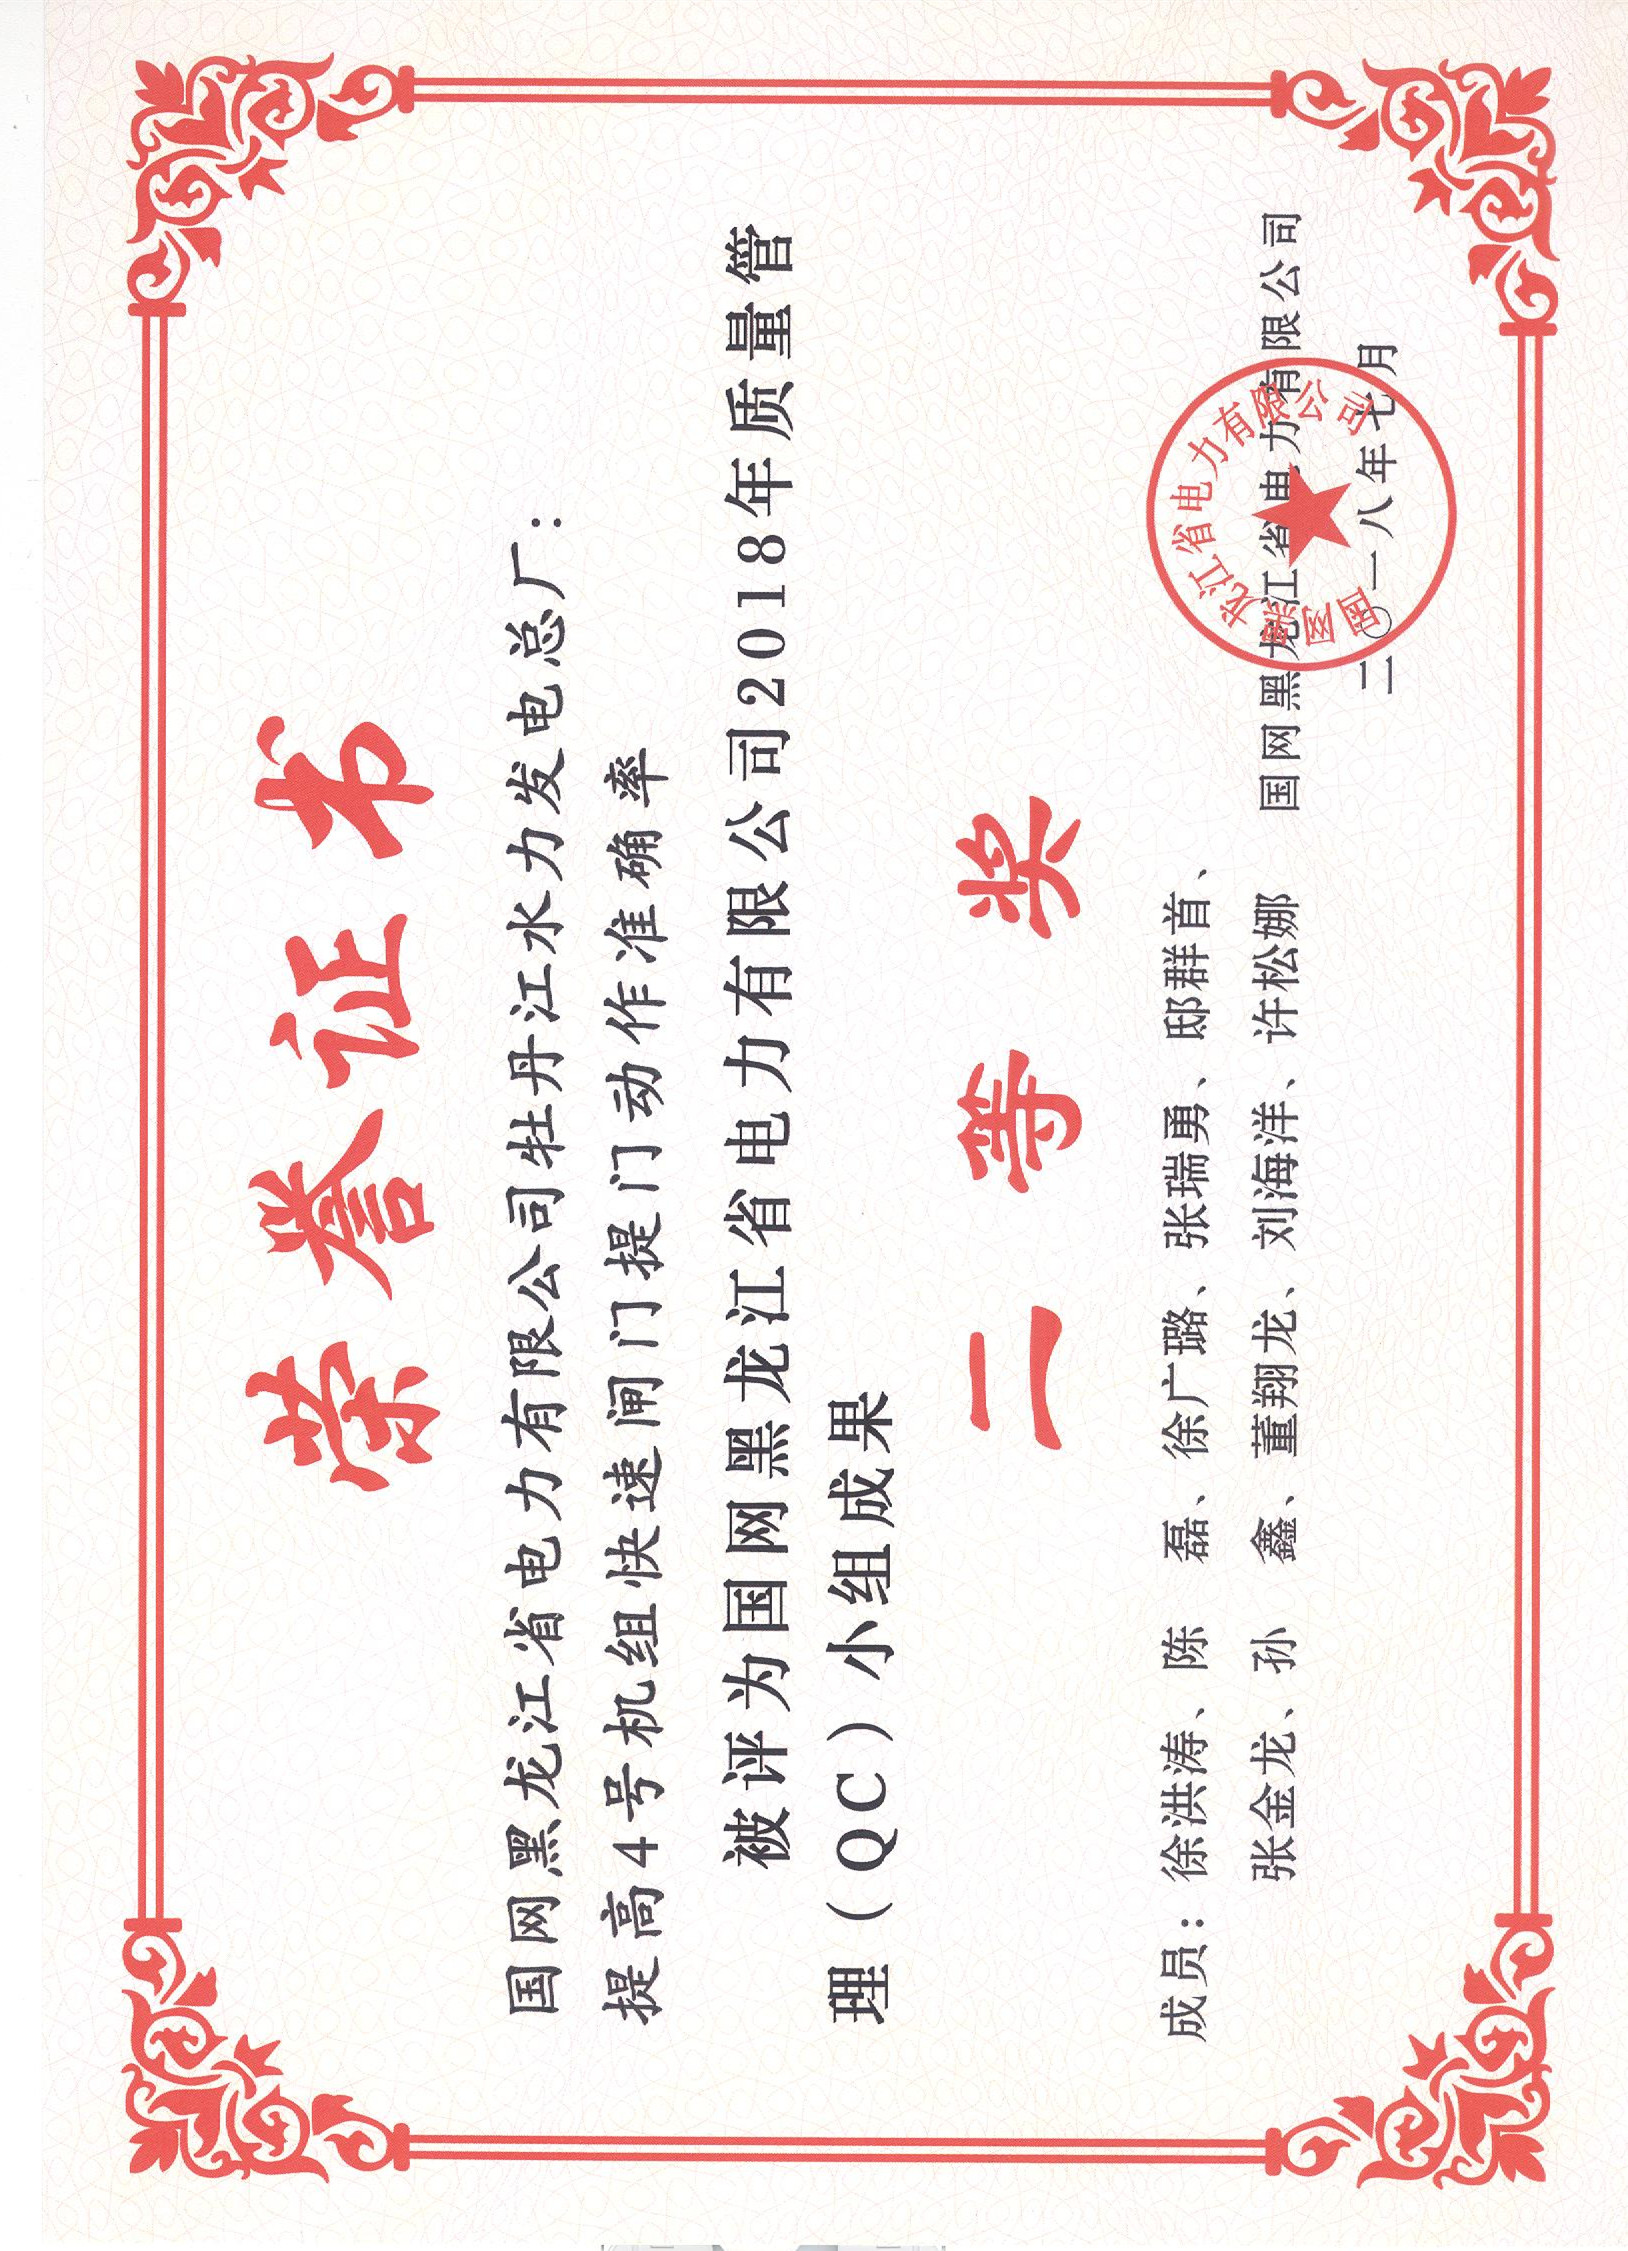 荣誉证书
国网黑龙江省电力有限公司牡丹江水力发电总厂：
提高4号机组快速闸门提门动作准确率
被评为国网黑龙江省电力有限公司2018年质量管
理（QC）小组成果
二等奖
成员：徐洪涛、陈　磊、徐广璐、张瑞勇、邸群首、
张金龙、孙　鑫、董翔龙、刘海洋、许松娜
国网黑龙江省电力有限公司
二〇一八年七月
国网黑龙江省电力有限公司